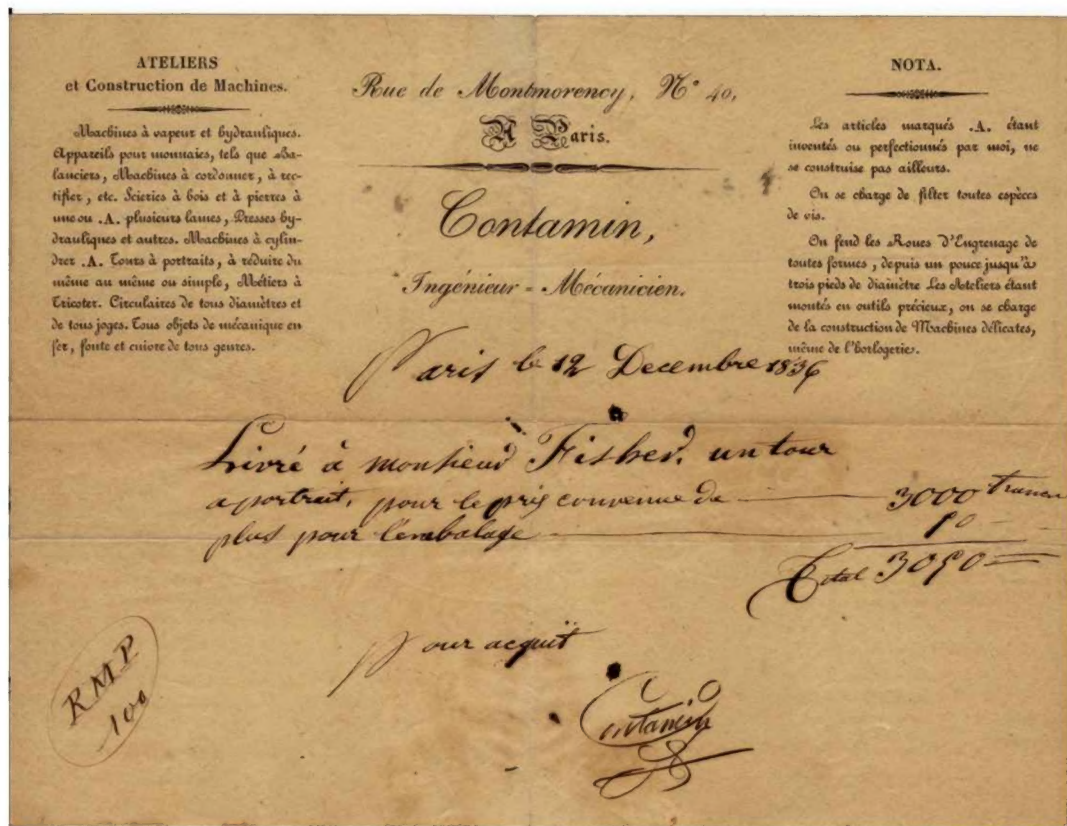 ATELIERS
et Construction de Machines.
Machines à vapeur et hydrauliques.
Appareils pour monnaies, tels que Ba-
lanciers, Machines à cordonner, à rec-
tifier, etc. Scieries à bois et à pierres à
une ou .A. plusieurs lames, Presses hy-
drauliques et autres. Machines à cylin-
drer .A. Tours à portraits, à réduire du
même au même ou simple, Métiers à
Tricoter. Circulaires de tous diamètres et
de tous joges. Tous objets de mécanique en
fer, fonte et cuivre de tous genres.
Rue de Montmorency, N° 40,
A Paris.
Contamin,
Ingénieur = Mécanicien.
NOTA.
Les articles marqués .A. étant
inventés ou perfectionnés par moi, ne
se construise pas ailleurs.
On se charge de fileter toutes espèces
de vis.
On fend les Roues D'Engrenage de
toutes formes, depuis un pouce jusqu'à
trois pieds de diamètre Les Ateliers étant
montés en outils précieux, on se charge
de la construction de Machines délicates,
même de l'horlogerie.
Paris le 12 Decembre 1836
Livré à monsieur Fisher. un tour
a portrait, pour le prix convenue de 3000 francs
plus pour l'embalage 50
Total 3050
Pour acquit
Contamin
RMP
100